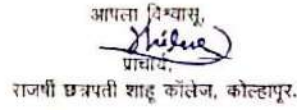 आपला विश्वासू,
प्राचार्य,
राजर्षी छत्रपती शाहू कॉलेज, कोल्हापूर.